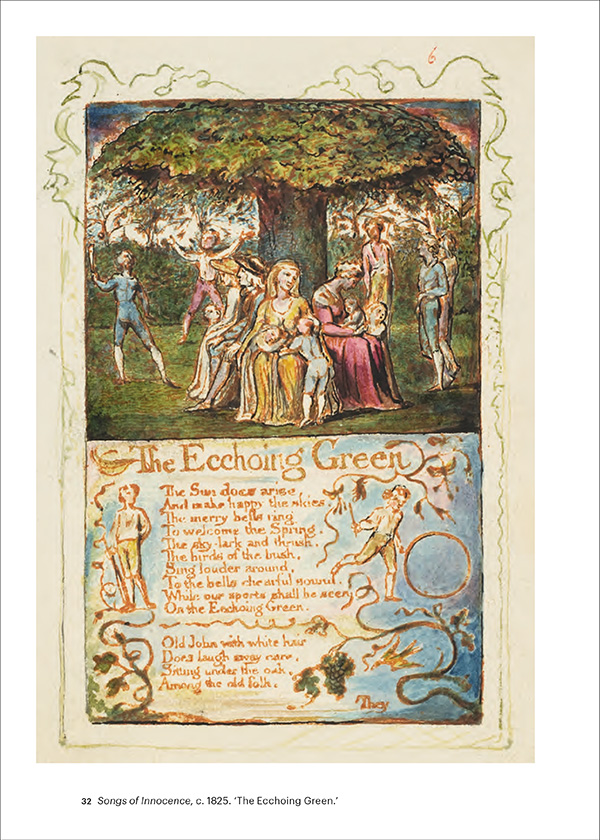 6
The Ecchoing Green
The Sun does arise
And make happy the skies.
The merry bells ring
To welcome the Spring.
The sky-lark and thrush.
The birds of the bush,
Sing louder around,
To the bells chearful sound.
While our sports shall be seen
On the Ecchoing Green.
Old John with white hair
Does laugh away care,
Sitting under the oak,
Among the old folk.
They
32 Songs of Innocence, c. 1825. ‘The Ecchoing Green.’